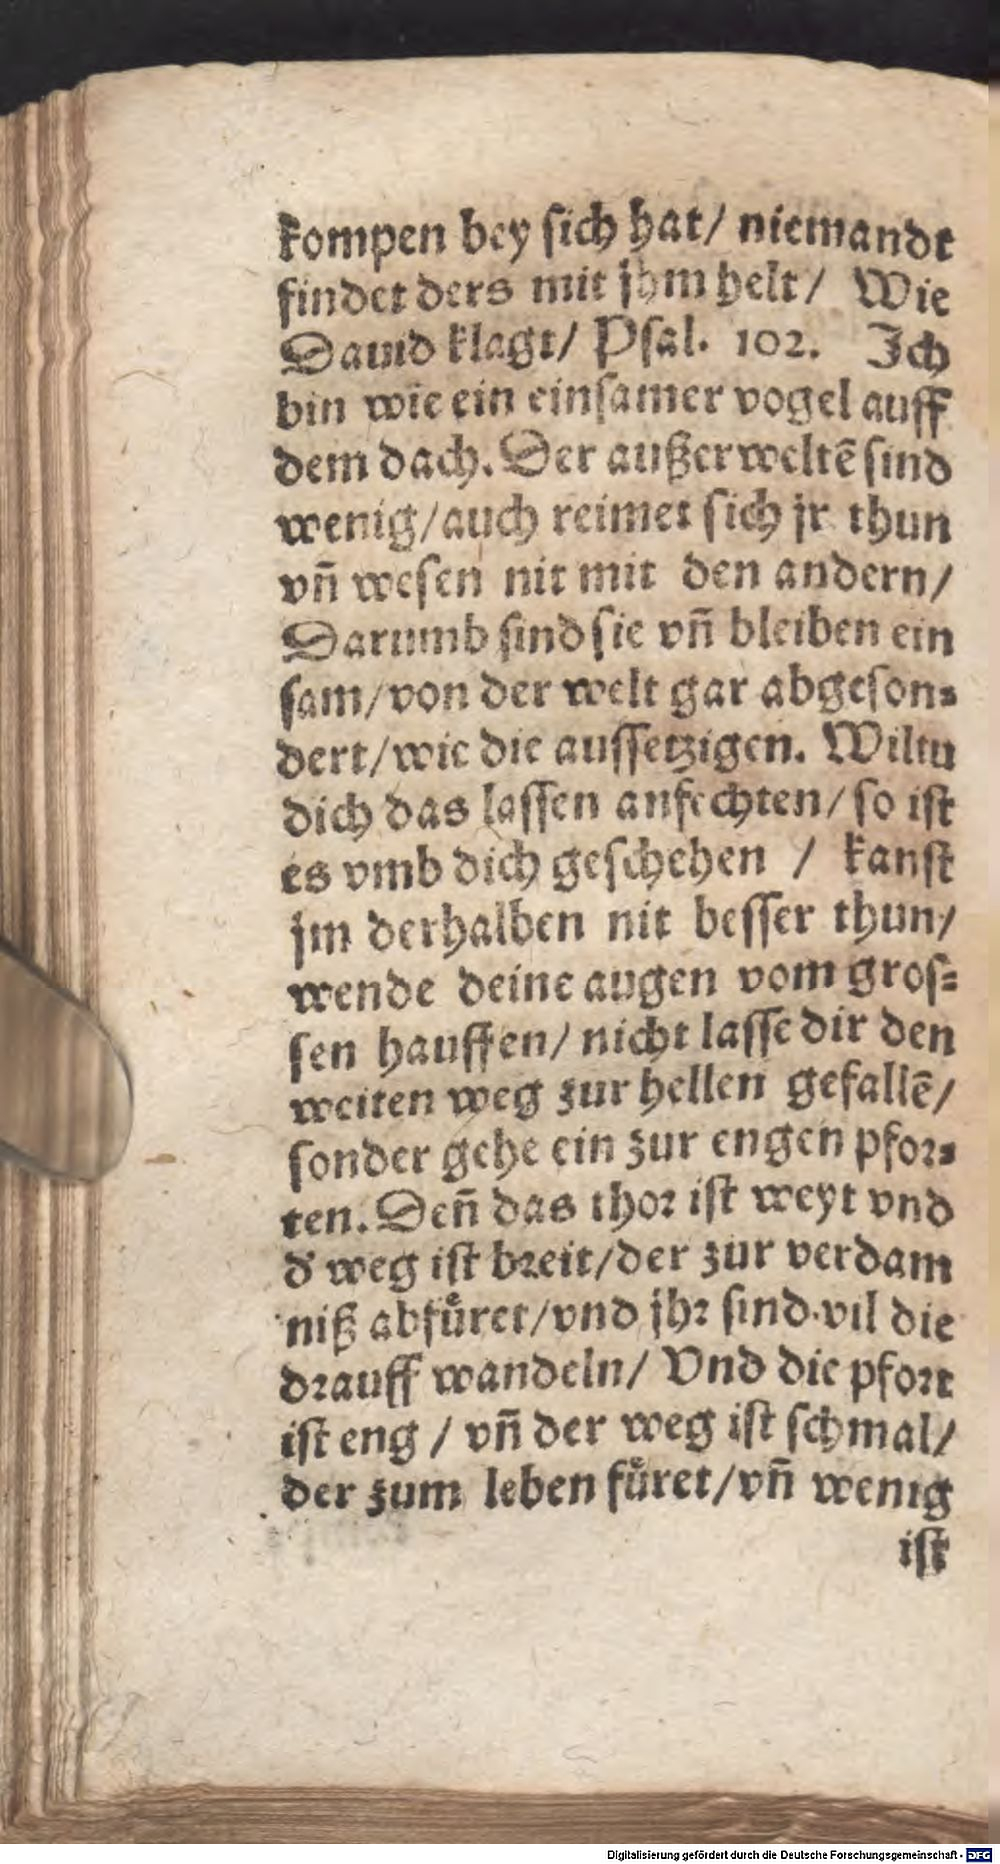 kompen bey sich hat/ niemandt
findet ders mit jhm helt/ Wie
Dauid klagt/ Psal. 102. Ich
bin wie ein einsamer vogel auff
dem dach. Der außerweltẽ sind
wenig/auch reimet sich jr thun
vñ wesen nit mit den andern/
Darumb sind sie vñ bleiben ein
sam/von der welt gar abgeson⸗
dert/wie die aussetzigen. Wiltu
dich das lassen anfechten/so ist
es vmb dich geschehen / kanst
jm derhalben nit besser thun/
wende deine augen vom gros⸗
sen hauffen/ nicht lasse dir den
weiten weg zur hellen gefallẽ/
sonder gehe ein zur engen pfor⸗
ten. Deñ das thor ist weyt vnd
d' weg ist breit/der zur verdam
niß abfuͤret/vnd jhr sind vil die
drauff wandeln/ Vnd die pfort
ist eng / vñ der weg ist schmal/
der zum leben fuͤret/vñ wenig
ist
Digitalisierung gefördert durch die Deutsche Forschungsgemeinschaft - DFG